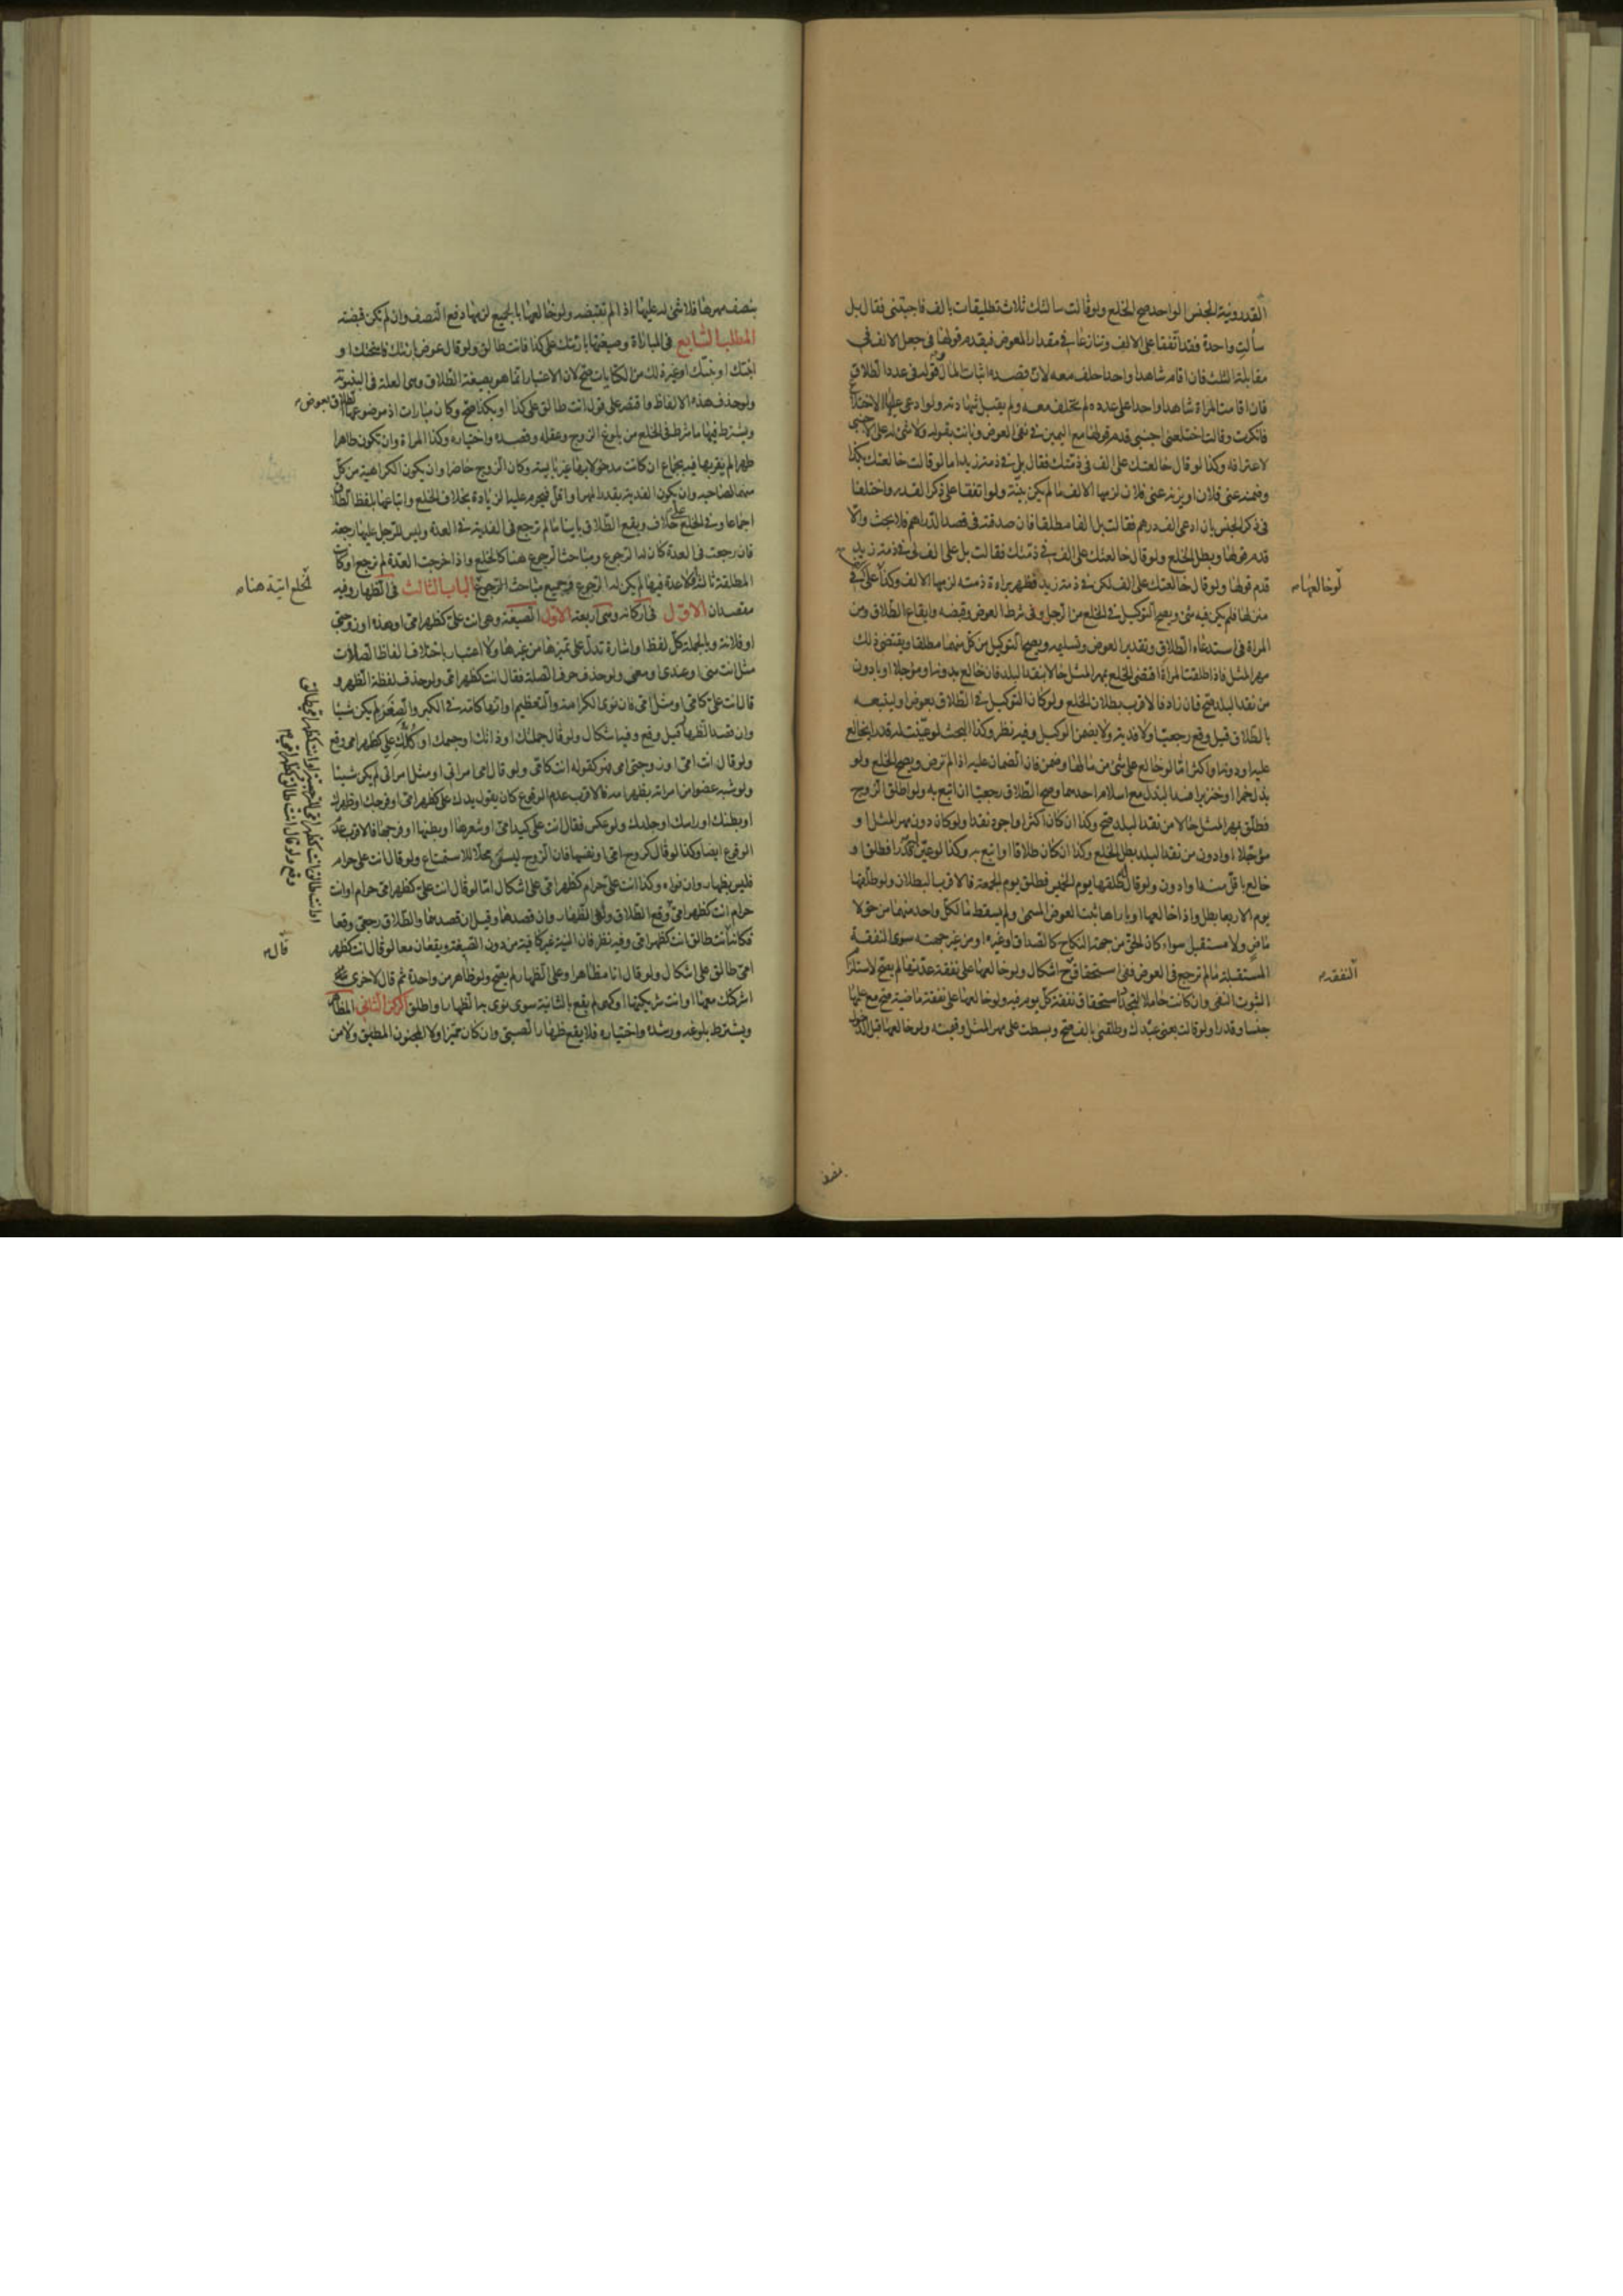 القدر ونية الجنس الواحد صح الخلع ولو قالت سالتك ثلاث تطليقات بالف فاجبتنى فقال بل
سألتِ واحدة فقد اتفقا على الالف وتنازعا فى مقدار المعوض فيقدم قولها فى جعل الالف فى
مقابلة الثلث فان اقام شاهدا واحدا حلف معه لان قصده اثبات المال وقوله فى عدد الطلاق
فان اقامت المراة شاهدا واحدا على عدده لم تحلف معه ولم يقبل شهادته ولو ادعى عليها الاختلاع
فانكرت وقالت اختلعنى اجنبى قدم قولها مع اليمين فى نفى العوض وبانت بقوله ولا شئ له على الاجنبى
لاعترافه وكذا لو قال خالعتك على الف فى ذمتك فقال بل فى ذمة زيد اما لو قالت خالعتك بكذا
وضمنه عنى فلان او يزنه عنى فلان لزمها الالف ما لم يكن بينة ولو اتفقا على ذكر القدر واختلفا
فى ذكر الجنس بان ادعى الف درهم فقالت بل الفا مطلقا فان صدقته فى قصد الدراهم فلا بحث والا
قدم قولها وبطل الخلع ولو قال خالعتك على الف فى ذمتك فقالت بل على الف لى فى ذمة زيد
قدم قولها ولو قال خالعتك على الف لكن فى ذمة زيد فظهر براءة ذمته لزمها الالف وكذا على
لو خالعها
منزلها فلم يكن فيه شئ ويصح التوكيل فى الخلع من الرجل وفى شرط العوض وقبضه وايقاع الطلاق ومن
المراة فى استدعاء الطلاق وتقدير العوض وتسليمه ويصح التوكيل من كل منهما مطلقا ويقتضى ذلك
مهر المثل فاذا اطلقت المراة اقتضى الخلع بمهر المثل حالا بنقد البلد فان خالع بدونه او مؤجلا او بادون
من نقد البلد صح فان زاد فالاقرب بطلان الخلع ولو كان التوكيل فى الطلاق بعوض او ليتبعه
بالطلاق قيل وقع رجعيا ولا فدية ولا يضمن الوكيل وفيه نظر وكذا البحث لو عينت له قدرا يخالع
عليه او دونه او اكثر اما لو خالع على شئ من مالها وضمن فان الضمان عليه اذا لم ترض ويصح الخلع ولو
بذل خمرا او خنزيرا فسد البذل مع اسلام احدهما وصح الطلاق رجعيا ان اتبع به ولو اطلق الزوج
فطلق بمهر المثل حالا من نقد البلد صح وكذا ان كان اكثر او اجود نقدا ولو كان دون مهر المثل او
مؤجلا او ادون من نقد البلد بطل الخلع وكذا ان كان طلاقا او اتبع به وكذا لو عين قدرا فطلق او
خالع باقل منه او ادون ولو قال طلقها يوم الخميس فطلق يوم الجمعة فالاقرب البطلان ولو طلقها
يوم الاربعا بطل واذا خالعها او باراها ثبت العوض المسمى ولم يسقط ما لكل واحد منهما من حق لا
ماضٍ ولا مستقبل سواء كان الحق من جهة النكاح كالصداق او غيره او من غير جهته سوى النفقة
المستقبلة ما لم ترجع فى العوض ففى استحقاق ح اشكال ولو خالعها على نفقة عدتها لم يصح لاستلزام
النفقة
الثبوت النفى وان كانت حاملا لتجدد استحقاق نفقة كل يوم فيه ولو خالعها على نفقة ماضية صح مع علمها
جنسا وقدرا ولو قالت بعنى عبدك وطلقنى بالف صح وبسطت على مهر المثل وقيمته ولو خالعها قبل الدخول
بنصف
بنصف مهرها فلا شئ له عليها اذا لم تقبضه ولو خالعها بالجميع لزمها دفع النصف وان لم تكن قبضته
المطلب السابع فى المباراة وصيغتها بارئتك على كذا فانت طالق ولو قال عوض بارئتك فاسختك او
ابنتك او بتتك او غير ذلك من الكنايات صح لان الاعتبار انما هو بصيغة الطلاق وهى العلة فى البينونة
ولو حذف هذه الالفاظ واقتصر على قوله انت طالق على كذا او بكذا صح وكان مبارات اذ موضوعها
الطلاق بعوض
ويشترط فيها ما شرط فى الخلع من بلوغ الزوج وعقله وقصده واختياره وكذا المراة وان يكون طاهرا
طهرا لم يقربها فيه بجماع ان كانت مدخولا بها غير يائسة وكان الزوج حاضرا وان يكون الكراهية من كل
منهما لصاحبه وان يكون الفدية بقدر المهر او اقل فيحرم عليه الزيادة بخلاف الخلع واتباعها بلفظ الطلاق
اجماعا وفى الخلع على خلاف ويقع الطلاق باينا ما لم ترجع فى الفدية فى العدة وليس للرجل عليها رجعة
فان رجعت فى العدة كان له الرجوع ومباحث الرجوع هنا كالخلع واذا خرجت العدة لم ترجع او كانت
المطلقة ثالثة او لا عدة فيها لم يكن له الرجوع وجميع مباحث الرجوع الباب الثالث فى الظهار وفيه
الخلع اتية هنا
مقصدان الاول فى اركانه وهى اربعة الاول الصيغة وهى انت على كظهر امى او هذه او زوجتى
او فلانة وبالجملة كل لفظ او اشارة تدل على تميزها من غيرها ولا اعتبار باختلاف الفاظ الصلات
مثل انت منى او عندى او معى ولو حذف حرف الصلة فقال انت كظهر امى ولو حذف لفظة الظهر و
قال انت على كامى او مثل امى فان نوى الكرامة والتعظيم او انها كامه فى الكبر والصغر لم يكن شيئا
وان قصد الظهار قيل وقع وفيه اشكال ولو قال جملتك او ذاتك او جسمك او كلك على كظهر امى وقع
ولو قال انت امى او زوجتى امى فهو كقوله انت كامى ولو قال امى امراتى او مثل امراتى لم يكن شيئا
ولو شبه عضوا من امراته بظهر امه فالاقرب عدم الوقوع كان يقول يدك على كظهر امى او فرجك او ظهرك
او بطنك او راسك او جلدك ولو عكس فقال انت على كيد امى او شعرها او بطنها او فرجها فالاقرب عدم
الوقوع ايضا وكذا لو قال كروح امى او نفسها فان الروح ليست محلا للاستمتاع ولو قال انت على حرام
فليس بظهار وان نواه وكذا انت على حرام كظهر امى على اشكال اما لو قال انت على كظهر امى حرام او انت
حرام انت كظهر امى وقع الطلاق ولغى الظهار وان قصدها وقيل ان قصدهما والطلاق رجعى وقعا
فكانه انت طالق انت كظهر امى وفيه نظر فان النية غير كافية من دون الصيغة ويقعان معا لو قال انت كظهر
قال
امى طالق على اشكال ولو قال انا مظاهر او على الظهار لم يصح ولو ظاهر من واحدة ثم قال لاخرى
اشركتك معها او انت شريكتها او كهى لم يقع بالثانية سوى نوى به الظهار او اطلق الركن الثانى المظاهر
ويشترط بلوغه ورشده واختياره فلا يقع ظهار الصبى وان كان مميزا ولا المجنون المطبق ولا من
وقع ولو قال انت طالق كظهر امى